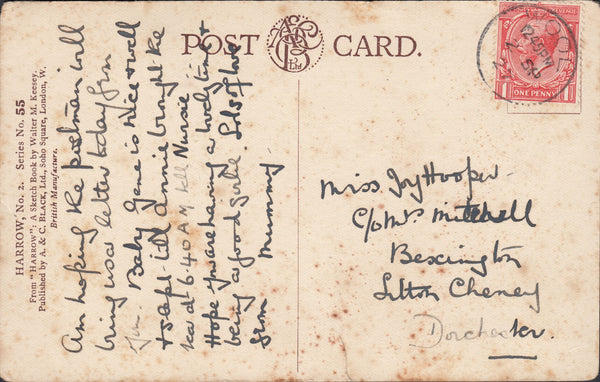 POST CARD.
HARROW, No. 2. Series No. 55
From "HARROW": A Sketch Book by Walter M. Keesey.
Published by A. & C. BLACK, Ltd., Soho Square, London, W.
British Manufacture.
Am hoping the postman will
bring us a letter today from
you. Baby Gene is nice & well
& slept till Annie brought the
tea at 6.40 AM tell Nursie
Hope you are having a lovely time &
being a good girlie. Lots of love
from Mummy
Miss Joy Hooper
C/o Mrs Mitchell
Bexington
Litton Cheney
Dorchester.
POSTAGE REVENUE
ONE PENNY
12.45PM